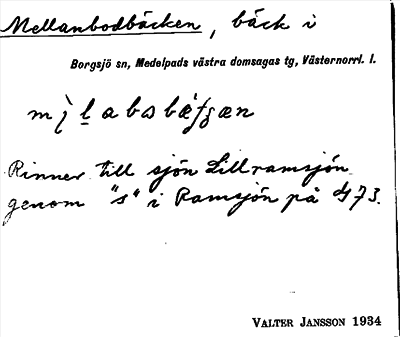 Mellanbodbäcken, bäck i
Borgsjö sn, Medelpads västra domsagas tg, Västernorrl. l.
Rinner till sjön Lillramsjön
genom "s" i Ramsjön på 73.
VALTER JANSSON 1934